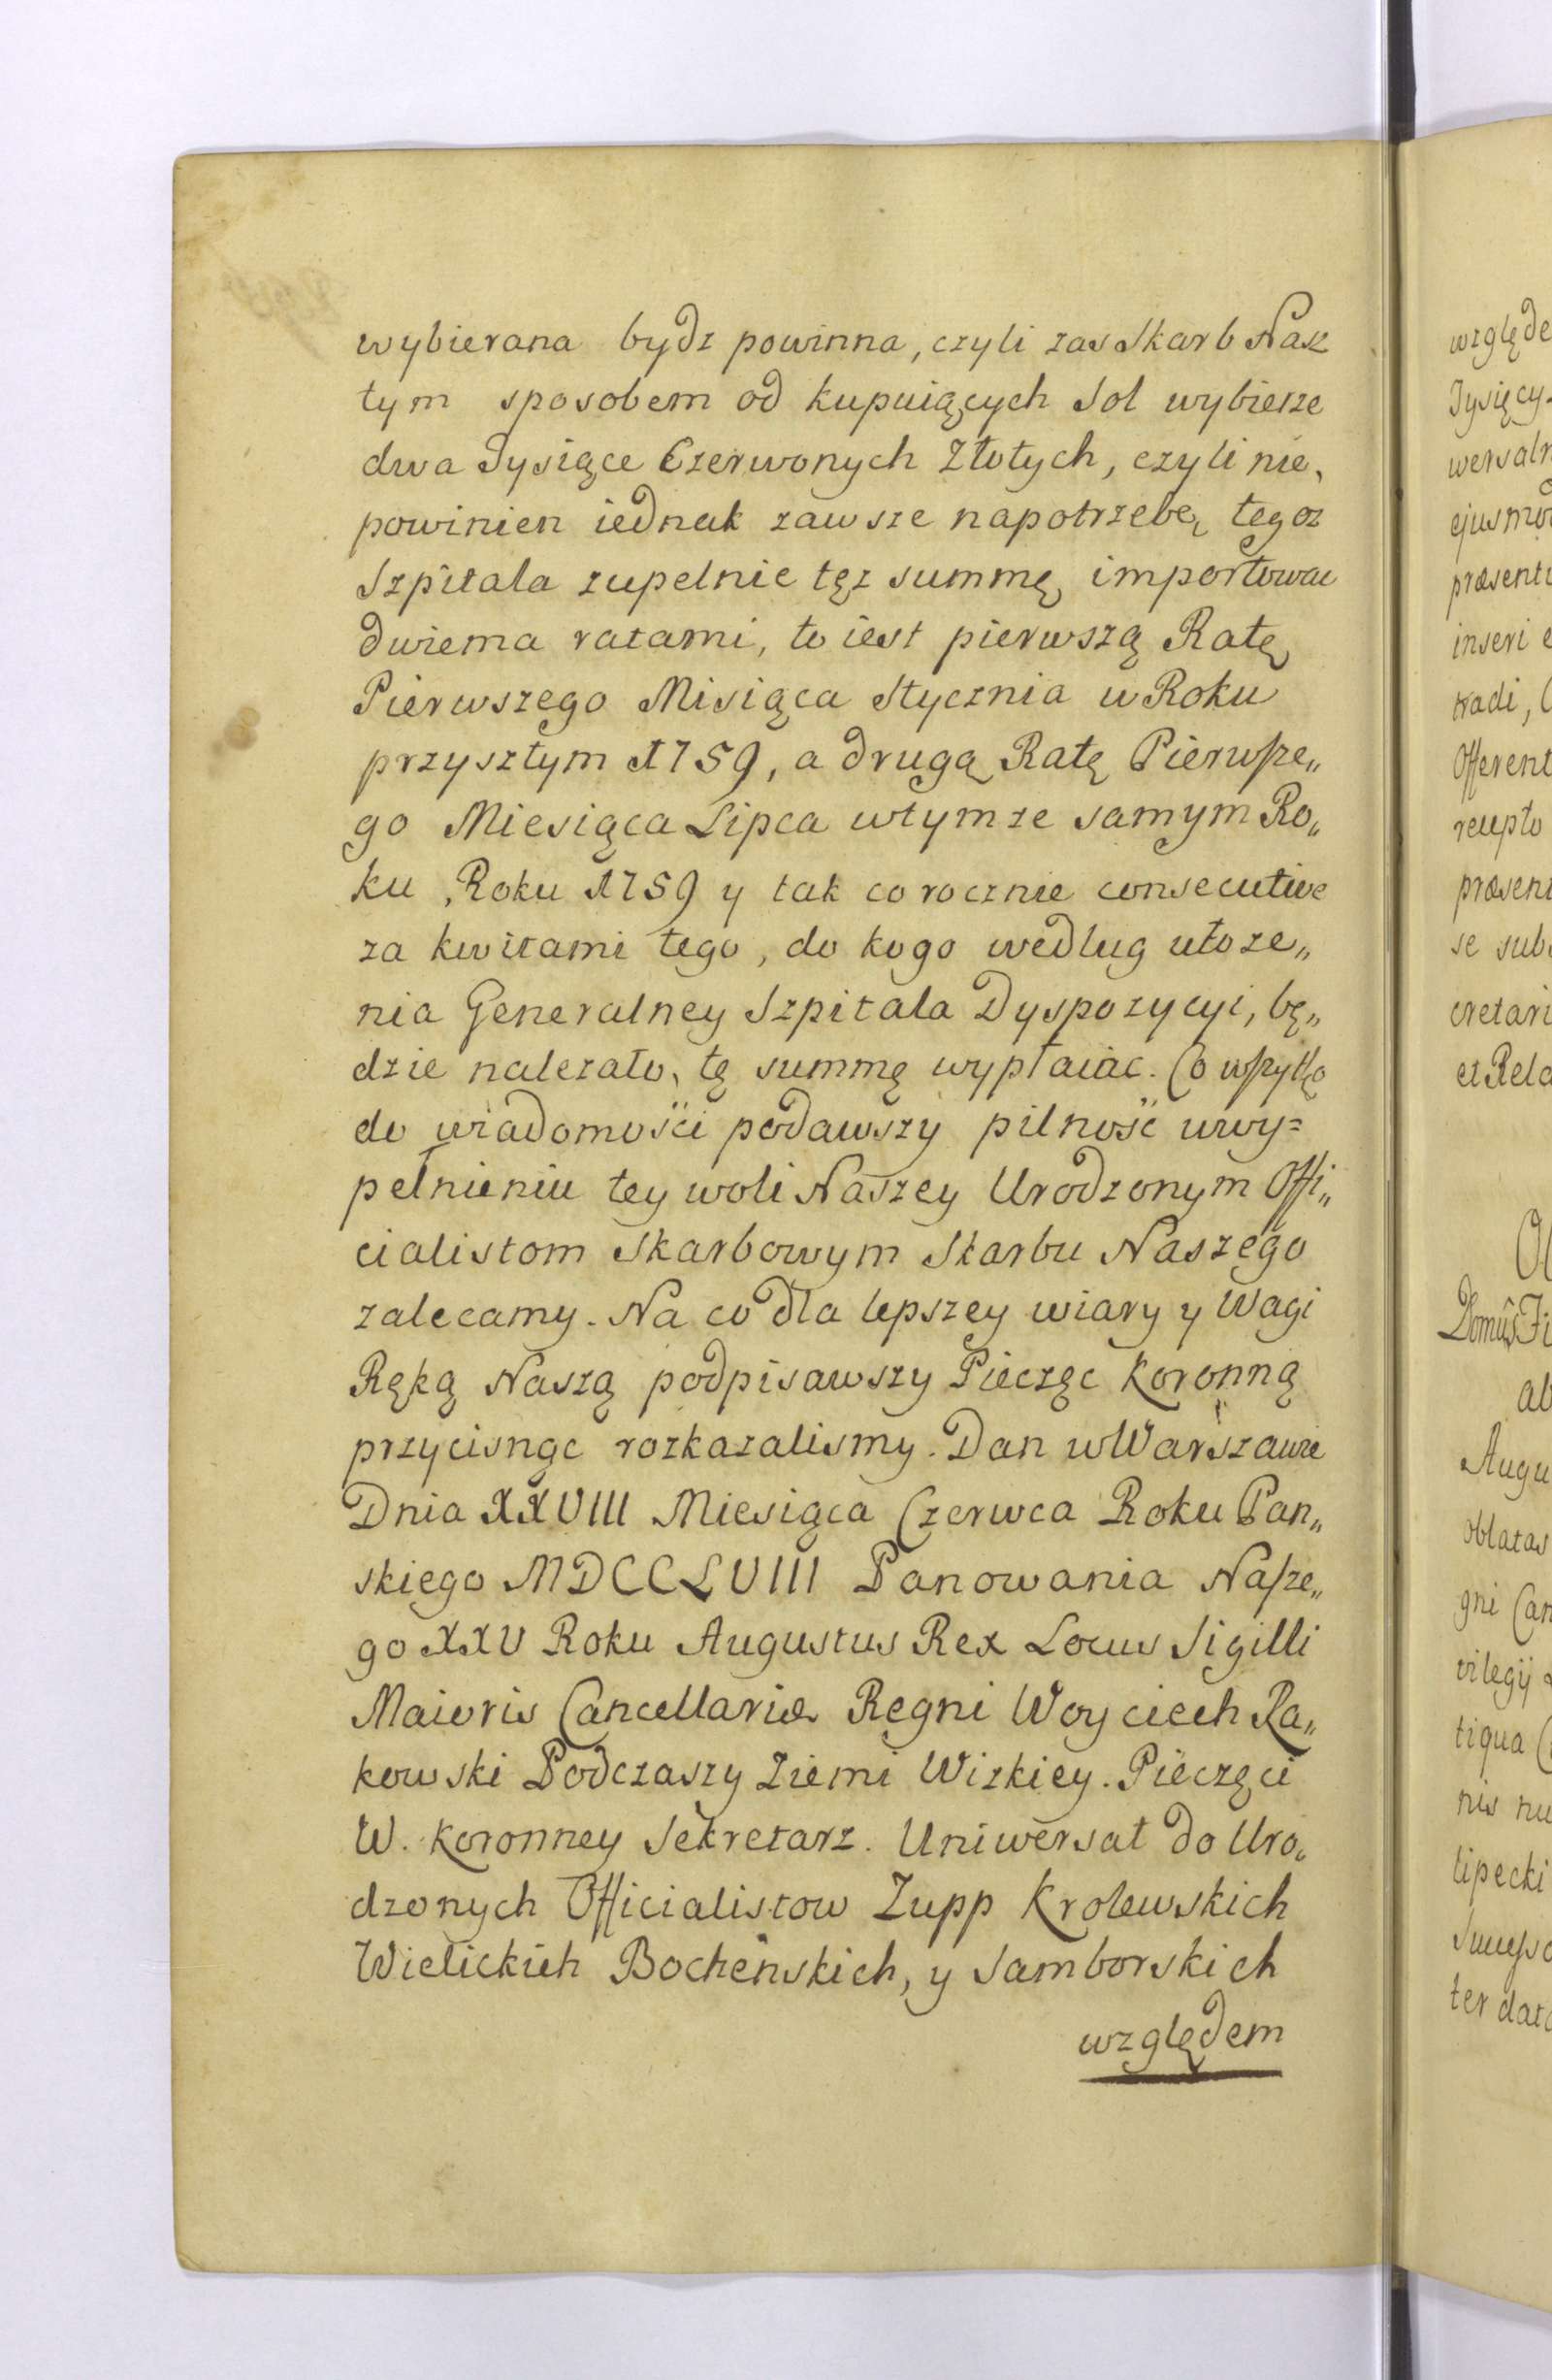 wybierana bydz powinna, czyli zas Skarb Nasz
tym sposobem od kupuiących Sol wybierze
dwa Tysiące Czerwonych Złotych, czyli nie,
powinien iednak zawsze napotrzebę tegoz
Szpitala zupelnie tęz summę importowac
dwiema ratami, to iest pierwszą Ratę
Pierwszego Misiąca Stycznia w Roku
przyszłym 1759, a drugą Ratę Pierwsze„
go Miesiąca Lipca wtymze samym Ro„
ku, Roku 1759 y tak co rocznie consecutive
za kwitami tego, do kogo według ułoze„
nia Generalney Szpitala Dyspozycyi, bę„
dzie nalezało, tę summę wypłaiac. Co wszytko
do wiadomości podawszy pilność wwy=
pełnieniu tey woli Naszey Urodzonym Offi„
cialistom Skarbowym Skarbu Naszego
zalecamy. Na co dla lepszey wiary y Wagi
Ręką Naszą podpisawszy Pieczęc Koronną
przycisnąc rozkazalismy. Dan w Warszawie
Dnia XXVIII Miesiąca Czerwca Roku Pan„
skiego MDCCLVIII Panowania Nasze„
go XXV Roku Augustus Rex Locus Sigilli
Maioris Cancellariæ Regni Woyciech Ra„
kowski Podczaszy Ziemi Wizkiey. Pieczęci
W. Koronney Sekretarz. Uniwersał do Uro„
dzonych Officialistow Zupp Krolewskich
Wielickich Bocheńskich, y Samborskich
względem
względe
Tysięcy
wersaln
ejusmod
præsenti
inseri e
tradi, C
Offerent
recepto
præsent
se subs
cretari
et Rela
Ob
Domûs Fi
ab
Augu
oblatas
gni Can
vilegij
tiqua C
nis nu
lipecki
Sucesso
ter data